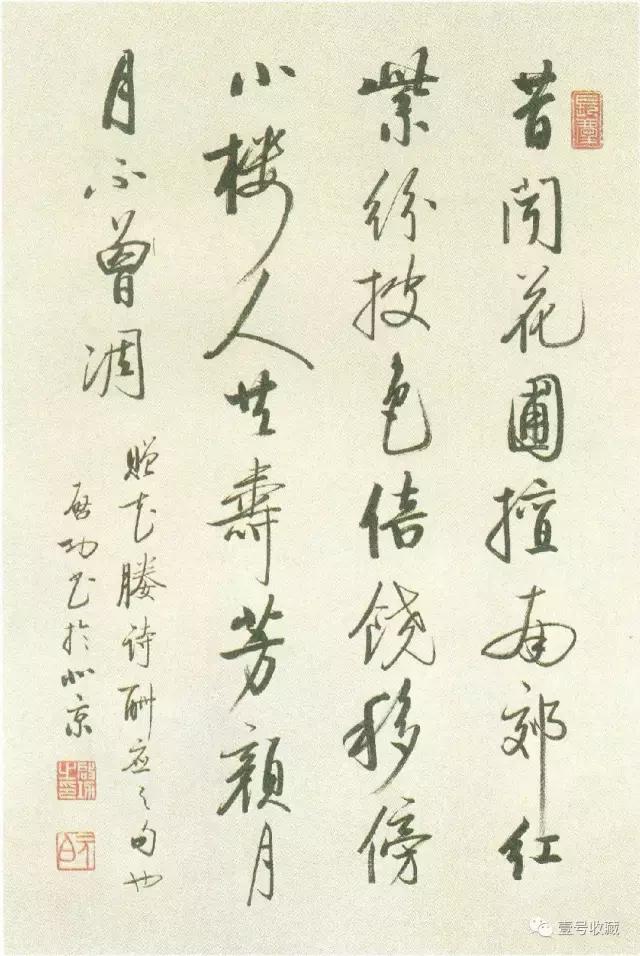 昔闻花圃擅南郊红
紫纷披色倍饶移傍
小楼人共寿芳颜月
月不曾凋
赠花媵诗酬应之句也
启功书于北京
壹号收藏